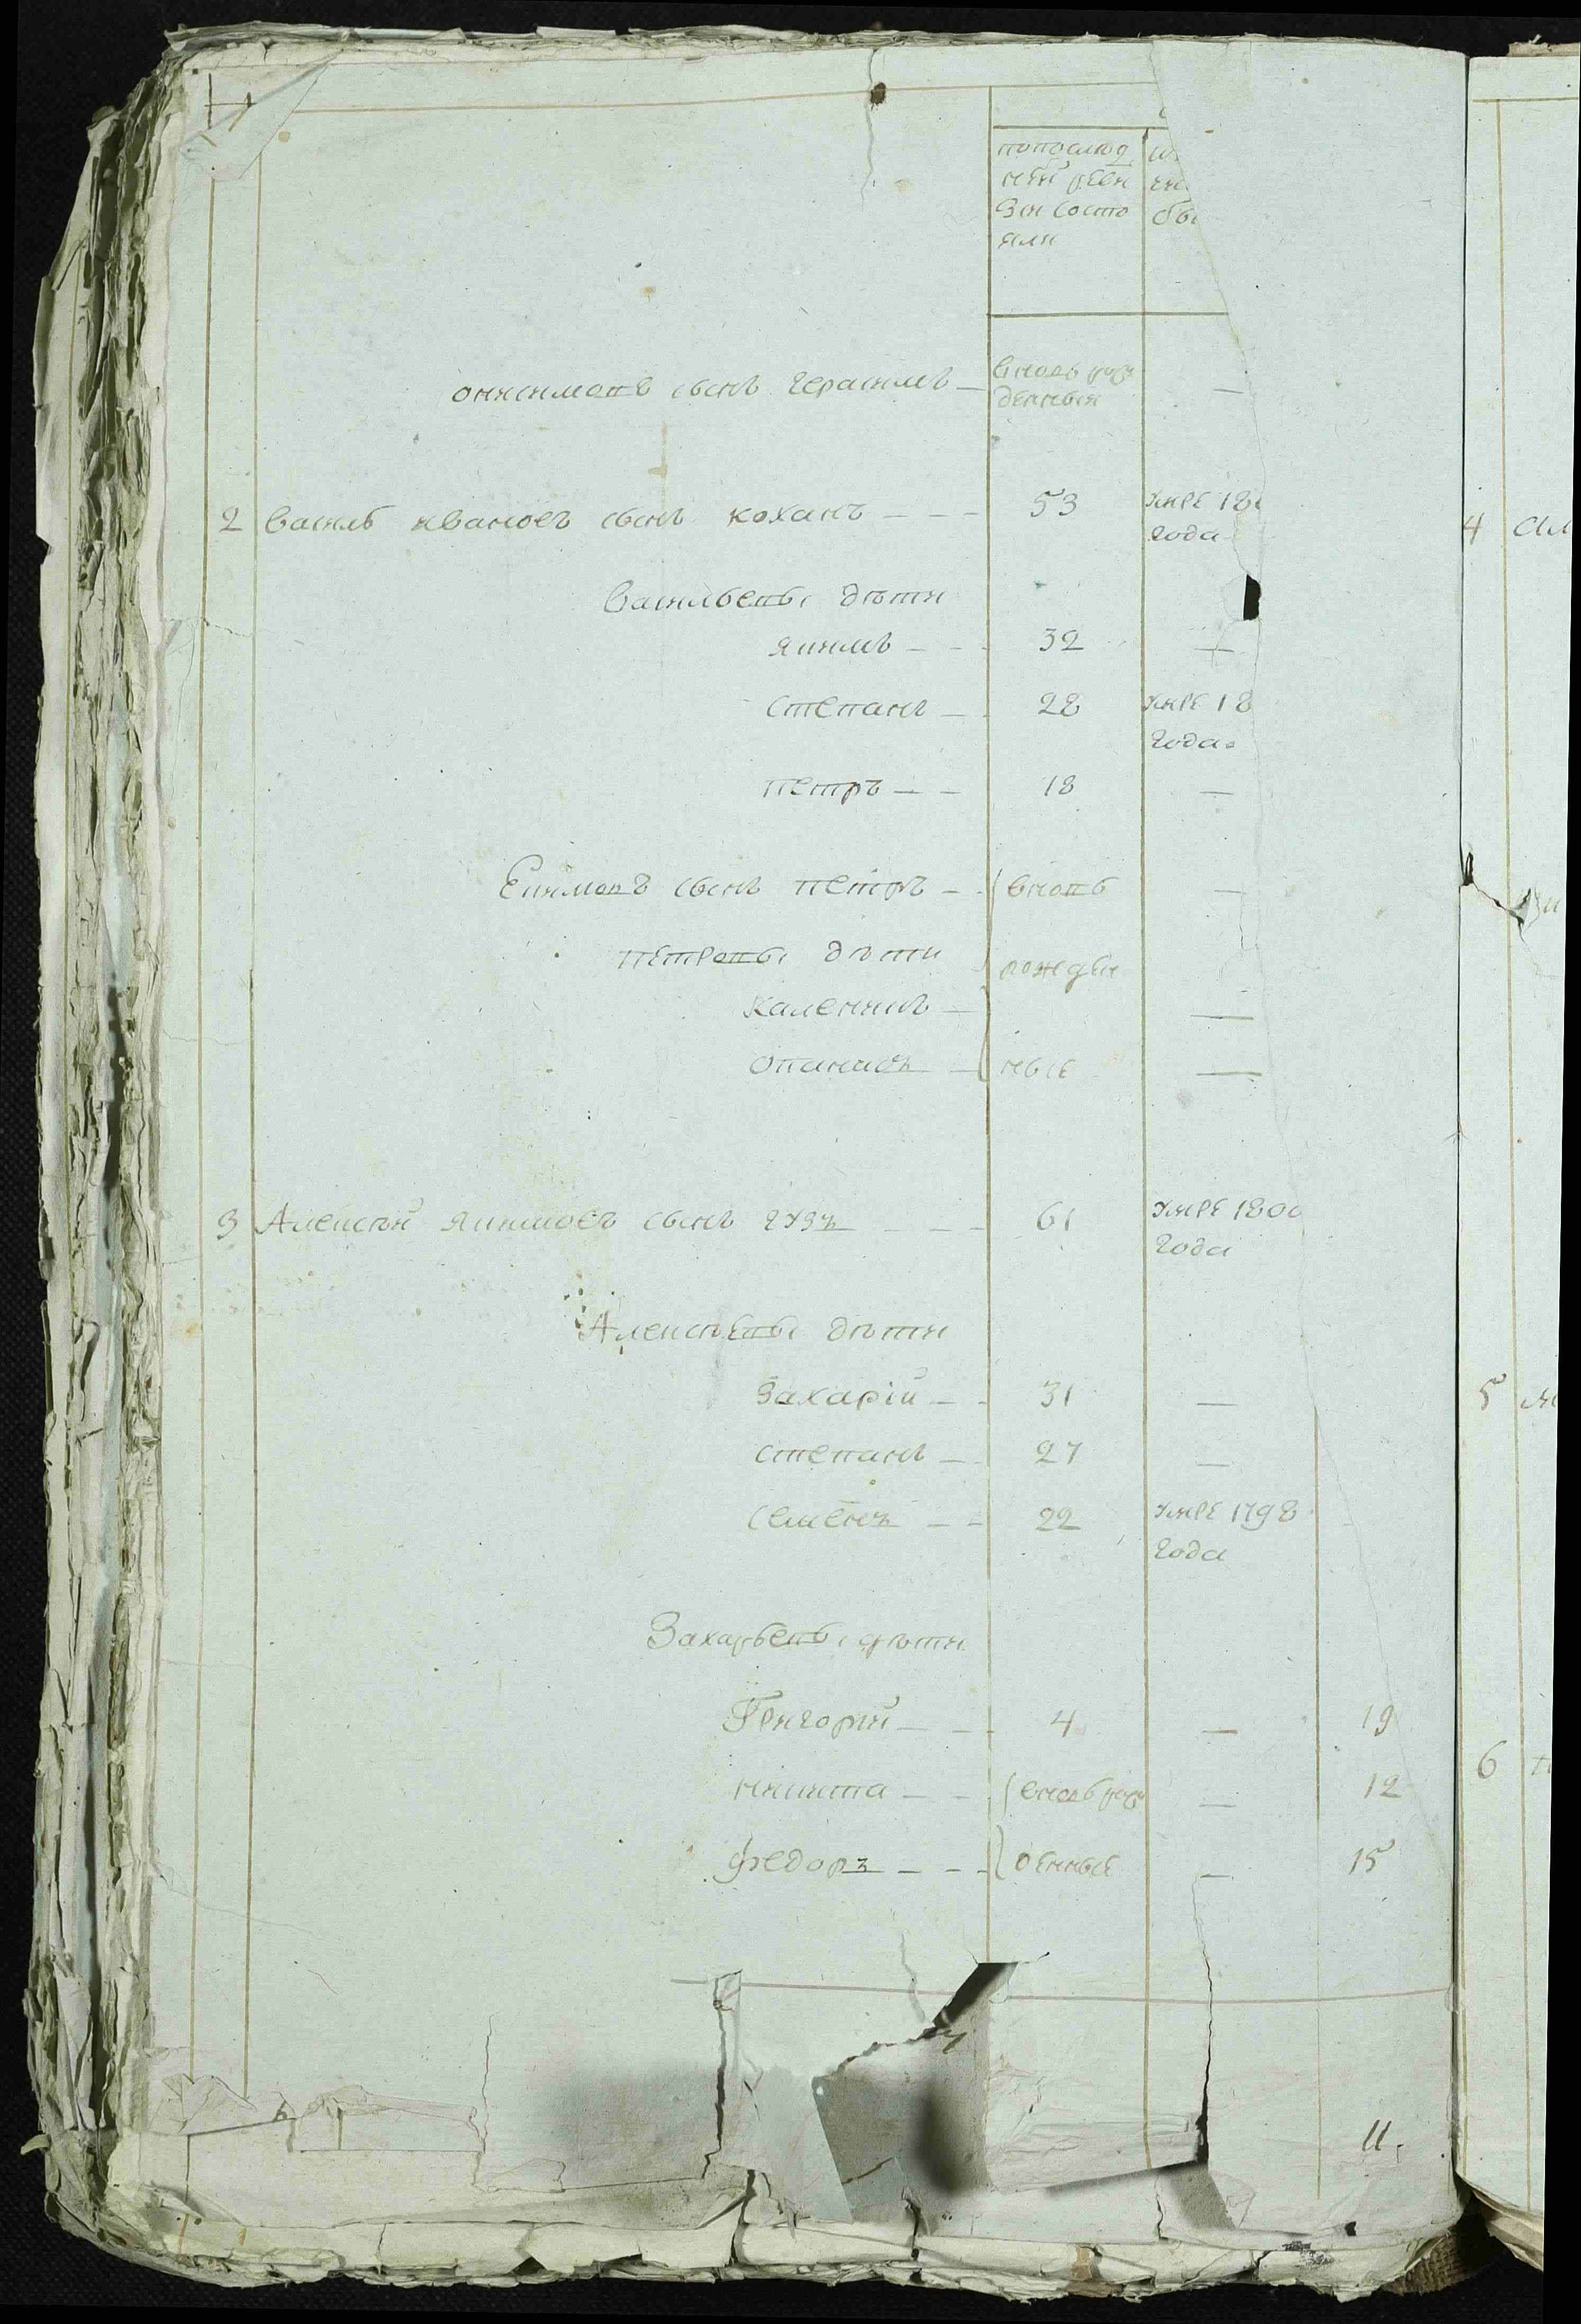 попослѣд
ней реви
зіи состо
яли
онисимовъ сынъ герасимъ — вновь рож —
денныя
2 василь ивановъ сынъ коханъ — — — 53 умре 18
года
васильевы дѣти
якимъ — — 32 —
степанъ — 28 умре 18
года
петръ — — 18 —
Екимовъ сынъ петръ — вновь —
петровы дѣти рожден
каленикъ — —
опанасъ — ные —
3 Алексѣй якимовъ сынъ гузъ — — — 61 умре 1800
года
Алексѣевы дѣти
Захарій — — 31 —
степанъ — 27 —
семенъ — — 22 умре 1798
года
Захарьевы дѣти
Григорий — — 4 — 19
никита — — вновь рож — 12
федоръ — — — денные — 15
11.
4
5
6